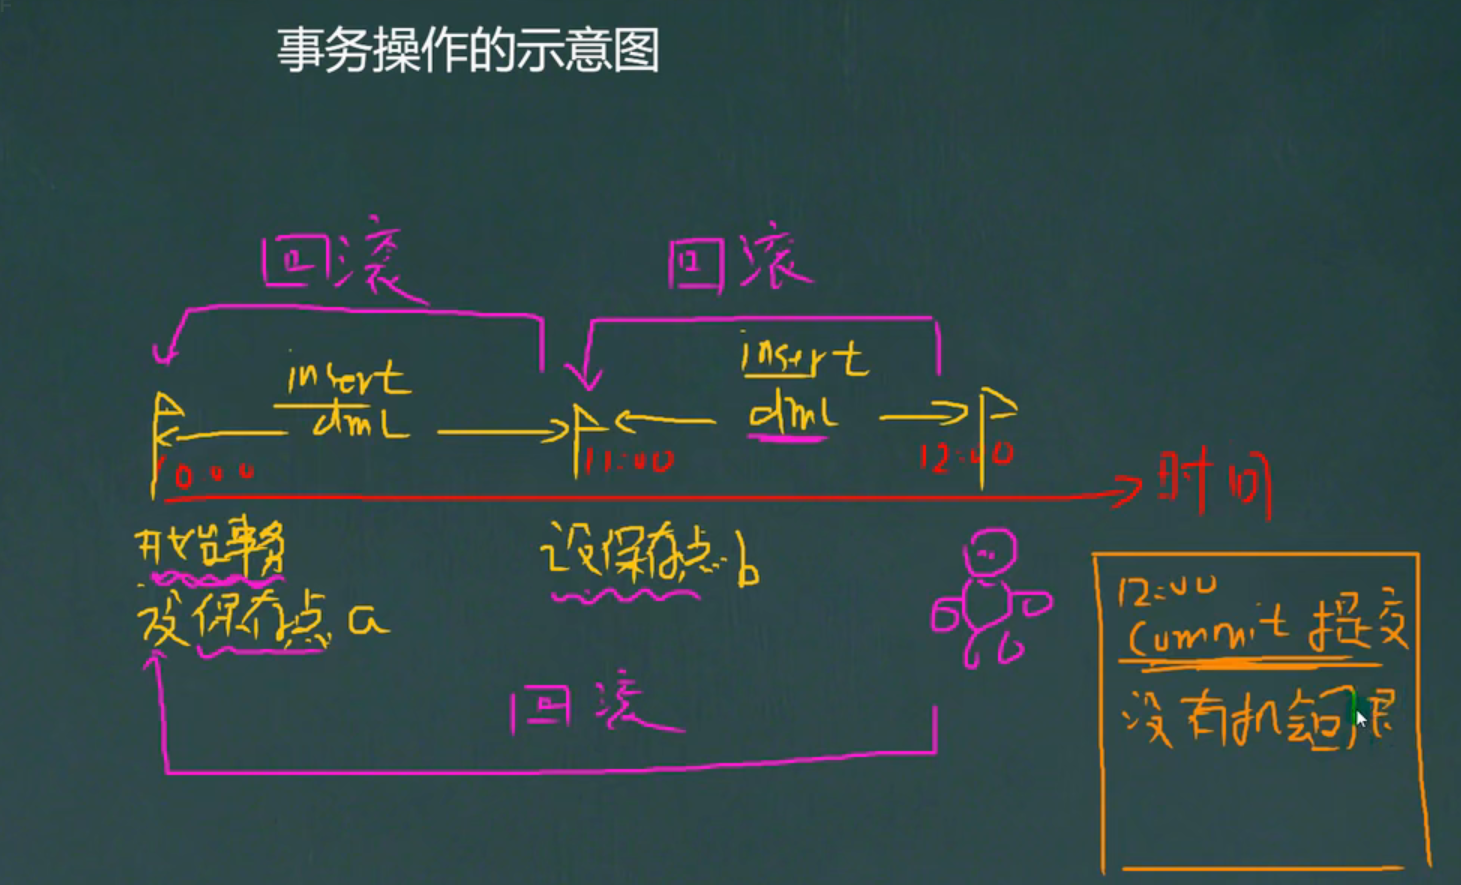 事务操作的示意图
回滚
回滚
insert
dml
insert
dml
10:00
11:00
12:00
时间
开始事务
设保存点 a
设保存点 b
回滚
12:00
commit 提交
没有机会回